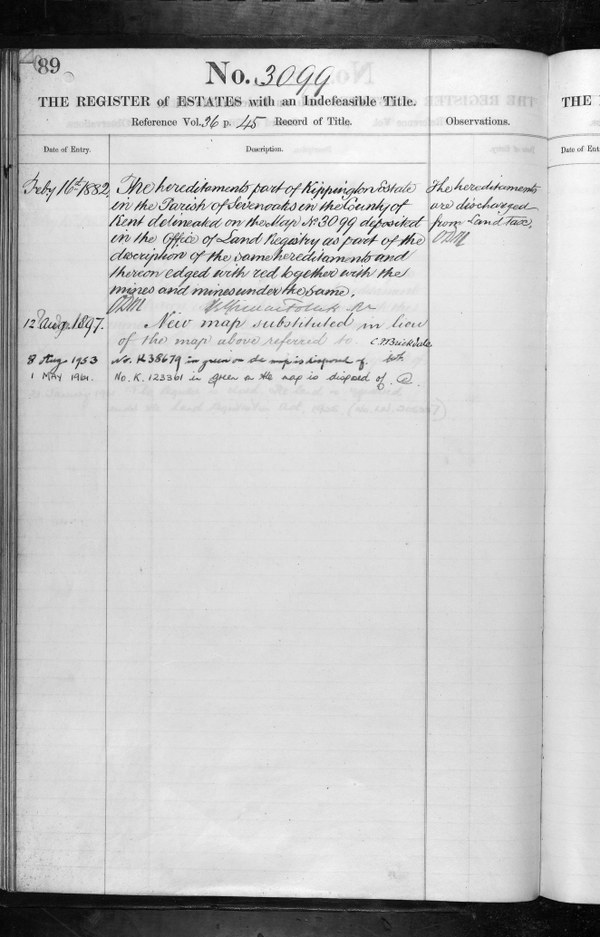 89
No. 3099
THE REGISTER of ESTATES with an Indefeasible Title.
Reference Vol. 36 p. 45 Record of Title.
Observations.
Date of Entry.
Description.
Feby 16th 1882.
The hereditaments part of Kippington Estate
in the Parish of Sevenoaks in the County of
Kent delineated on the Map No 3099 deposited
in the Office of Land Registry as part of the
description of the same hereditaments and
thereon edged with red together with the
mines and mines under the same.
The hereditaments
are discharged
from Land Tax.
12 Augt 1897.
New map substituted in lieu
of the map above referred to.
8 Aug. 1953
No. K38679 in green on the map is disposed of.
1 MAY 1961.
No. K. 123361 in green on the map is disposed of.
THE
Date of Ent